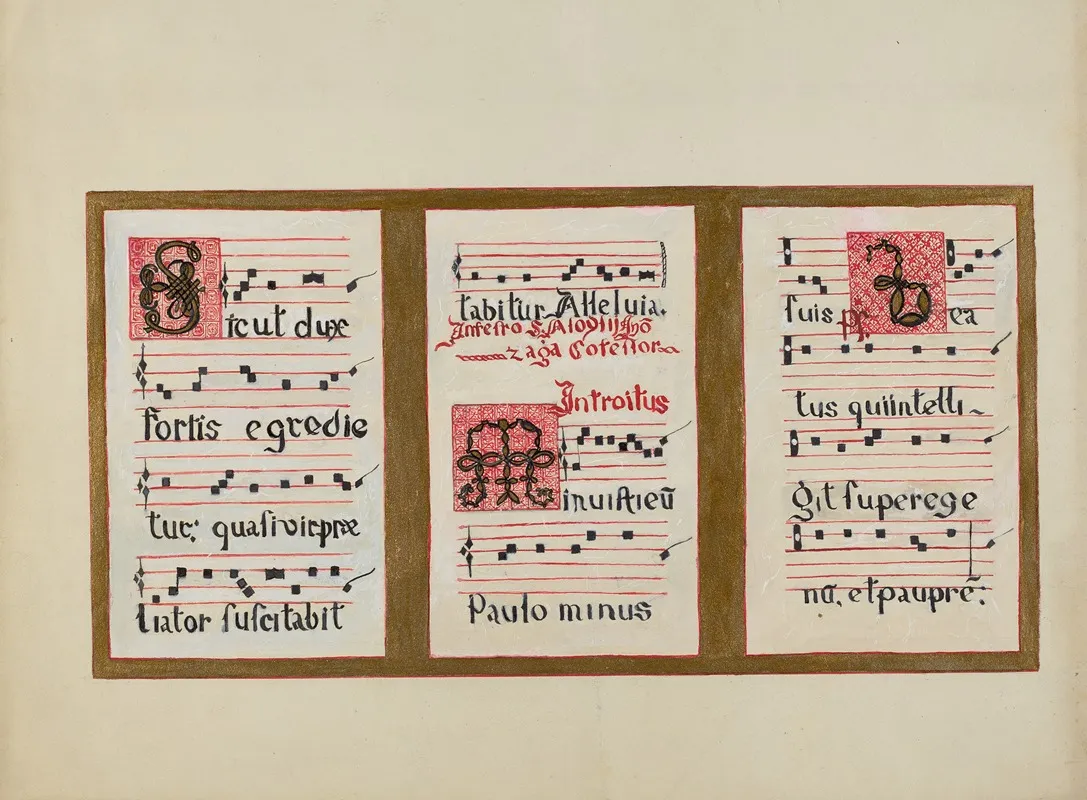 Sicut dux
fortis egredie
tur: quasi vir præ
liator suscitabit
tabitur Alleluia.
Introitus
Minuisti eū
Paulo minus
suis ps. Bea
tus qui intelli
git super ege
nū, et pauprē: